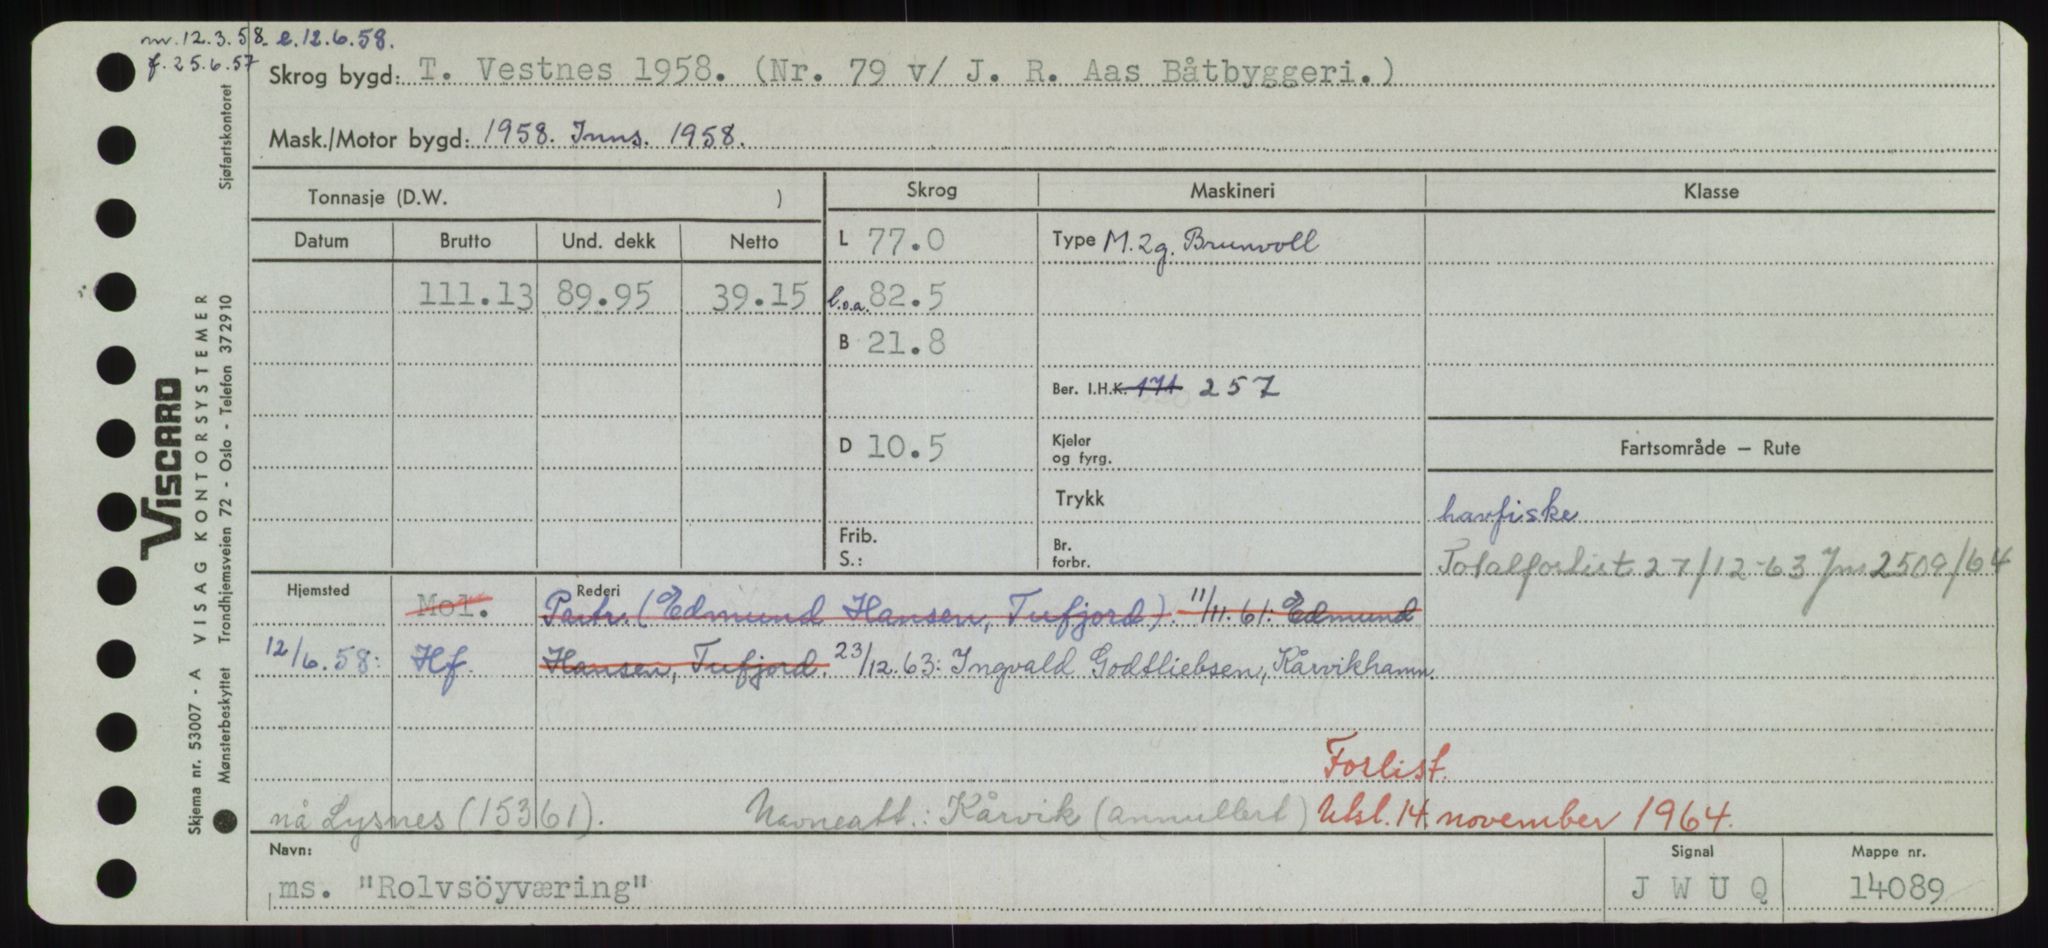 m. 12.3.58. e. 12.6.58.
f. 25.6.57
Skrog bygd: T. Vestnes 1958. (Nr. 79 v/ J. R. Aas Båtbyggeri.)
Mask./Motor bygd: 1958. Inns. 1958.
Tonnasje (D.W. )
Skrog Maskineri Klasse
Datum Brutto Und. dekk Netto
L 77.0 Type M. 2g. Brunvoll
111.13 89.95 39.15 l.o.a. 82.5
B 21.8
Ber. I.H.K. 171 257
D 10.5 Kjeler og fyrg.
Fartsområde — Rute
Trykk
havfiske
Frib. S.: Br. forbr.
Totalforlist 27/12-63 Jm 2509/64
Hjemsted Mol. Rederi Partr. (Edmund Hansen, Tufjord). 11/11.61: Edmund
12/6.58: Hf. Hansen, Tufjord. 23/12.63: Ingvald Godtliebsen, Kårvikhamn.
Forlist.
nå Lysnes (15361). Navneatt.: Kårvik (annullert) Utsl. 14. november 1964.
Navn: Signal Mappe nr.
ms. "Rolvsöyværing" J W U Q 14089
Sjøfartskontoret
VISCARD
VISAG KONTORSYSTEMER
Skjema nr. 53007 - A
Mønsterbeskyttet Trondhjemsveien 72 - Oslo - Telefon 372910